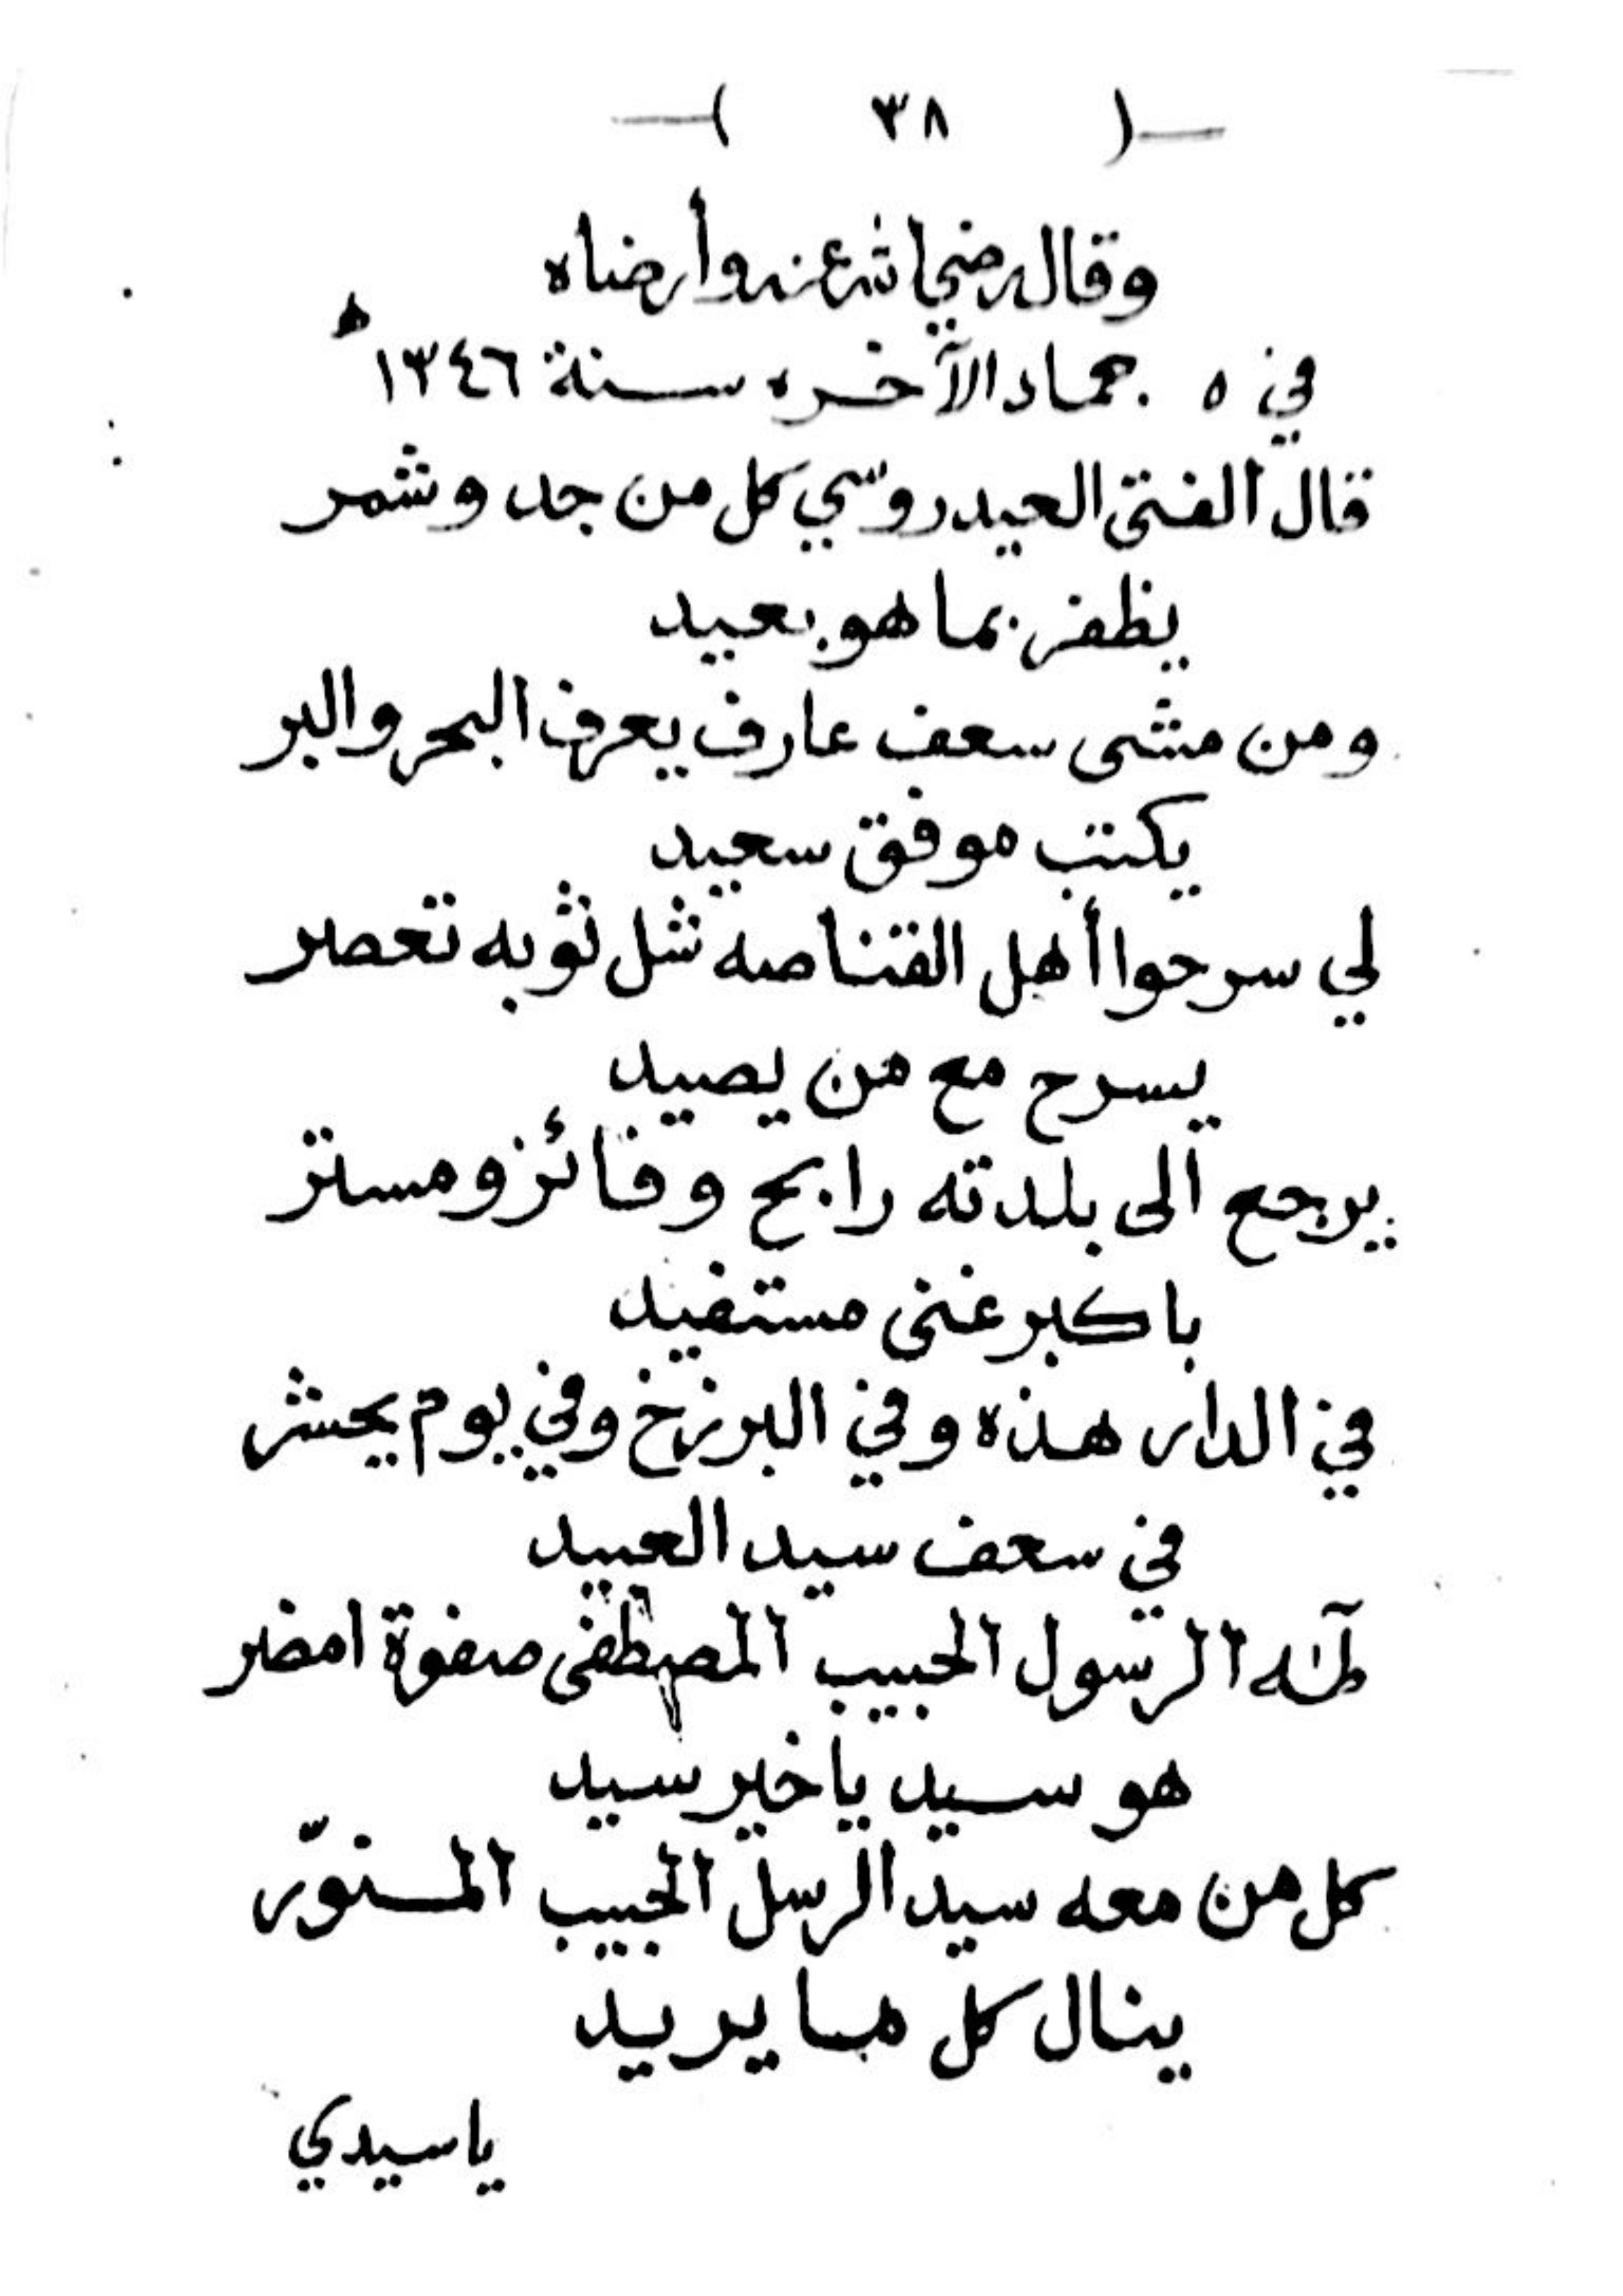 —( ٣٨ )—
وقال رضي الله عنه وأرضاه
في ٥ جماد الآخره سنة ١٣٤٦ ھ
قال الفتى العيدروسي كل من جد وشمر
يظفر بما هو بعيد
ومن مشى سعف عارف يعرف البحر والبر
يكتب موفق سعيد
لي سرحوا أهل القناصه شل ثوبه تعصر
يسرح مع من يصيد
يرجع الى بلدته رابح وفائز ومستر
باكبر غنى مستفيد
في الدار هذه وفي البرزخ وفي يوم يحشر
في سعف سيد العبيد
طه الرسول الحبيب المصطفى صفوة امضر
هو سيد ياخير سيد
كل من معه سيد الرسل الحبيب المنوّر
ينال كل ما يريد
ياسيدي